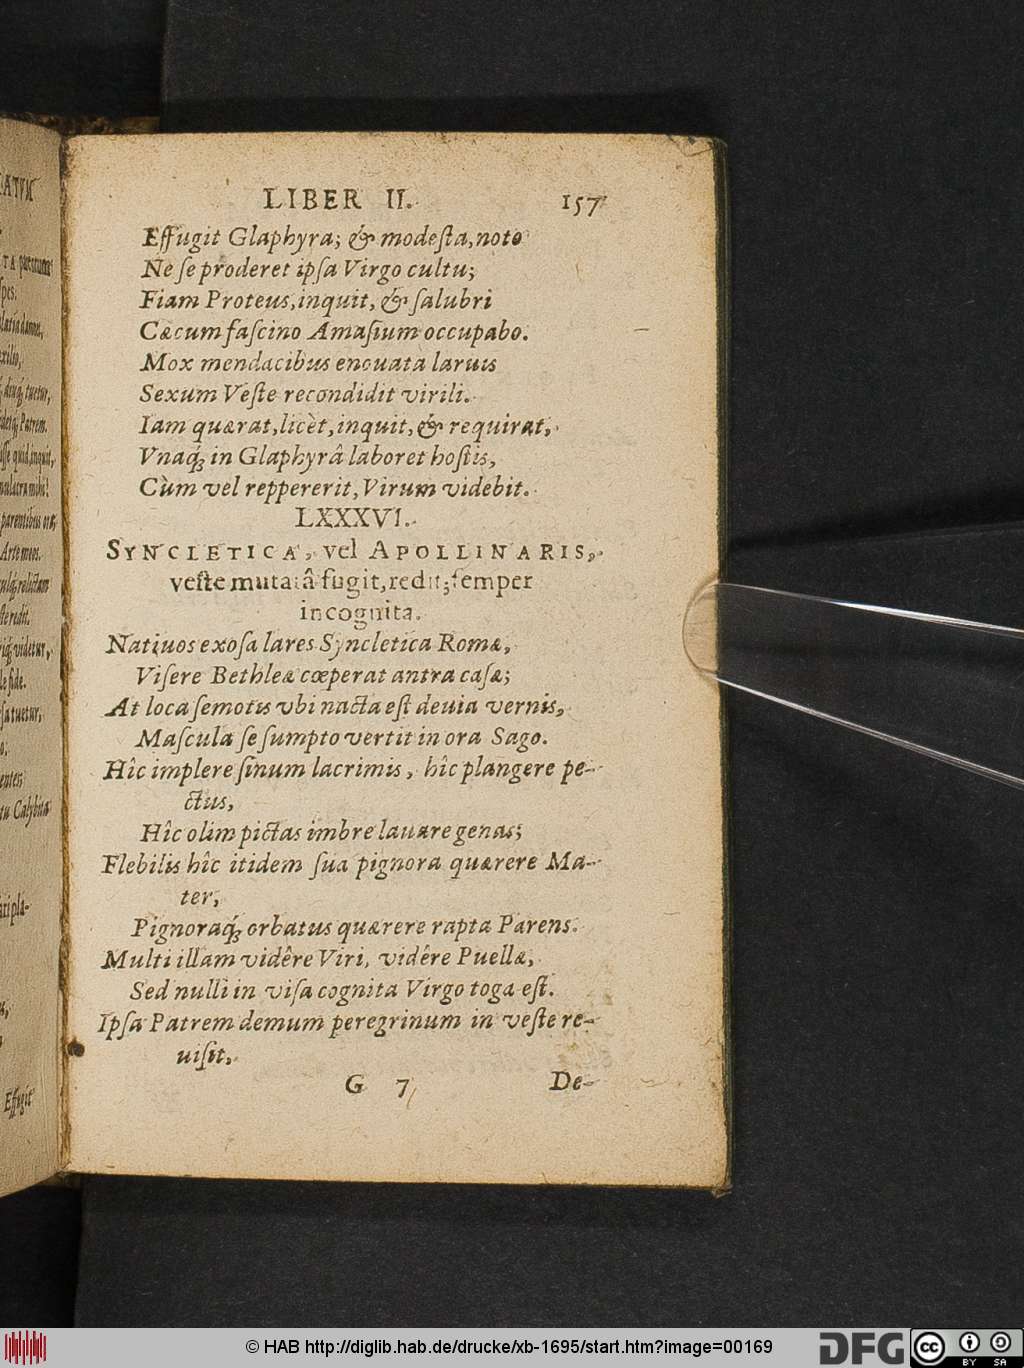 LIBER II. 157
Effugit Glaphyra; & modeſta, noto
Ne ſe proderet ipſa Virgo cultu;
Fiam Proteus, inquit, & ſalubri
Cæcum faſcino Amaſium occupabo.
Mox mendacibus enouata laruis
Sexum Veſte recondidit virili.
Iam quærat, licèt, inquit, & requirat,
Vnaq́; in Glaphyrâ laboret hoſtis,
Cùm vel reppererit, Virum videbit.
LXXXVI.
SYNCLETICA, vel APOLLINARIS,
veſte mutatâ fugit, redit; ſemper
incognita.
Natiuos exoſa lares Syncletica Romæ,
Viſere Bethleæ cœperat antra caſæ;
At loca ſemotis vbi nacta eſt deuia vernis,
Maſcula ſe ſumpto vertit in ora Sago.
Hîc implere ſinum lacrimis, hîc plangere pe-
ctus,
Hîc olim pictas imbre lauare genas;
Flebilis hîc itidem ſua pignora quærere Ma-
ter,
Pignoraq́; orbatus quærere rapta Parens.
Multi illam vidêre Viri, vidêre Puellæ,
Sed nulli in viſa cognita Virgo toga eſt.
Ipſa Patrem demum peregrinum in veſte re-
uiſit,
G 7 De-
Effugit
© HAB http://diglib.hab.de/drucke/xb-1695/start.htm?image=00169
DFG
cc BY SA